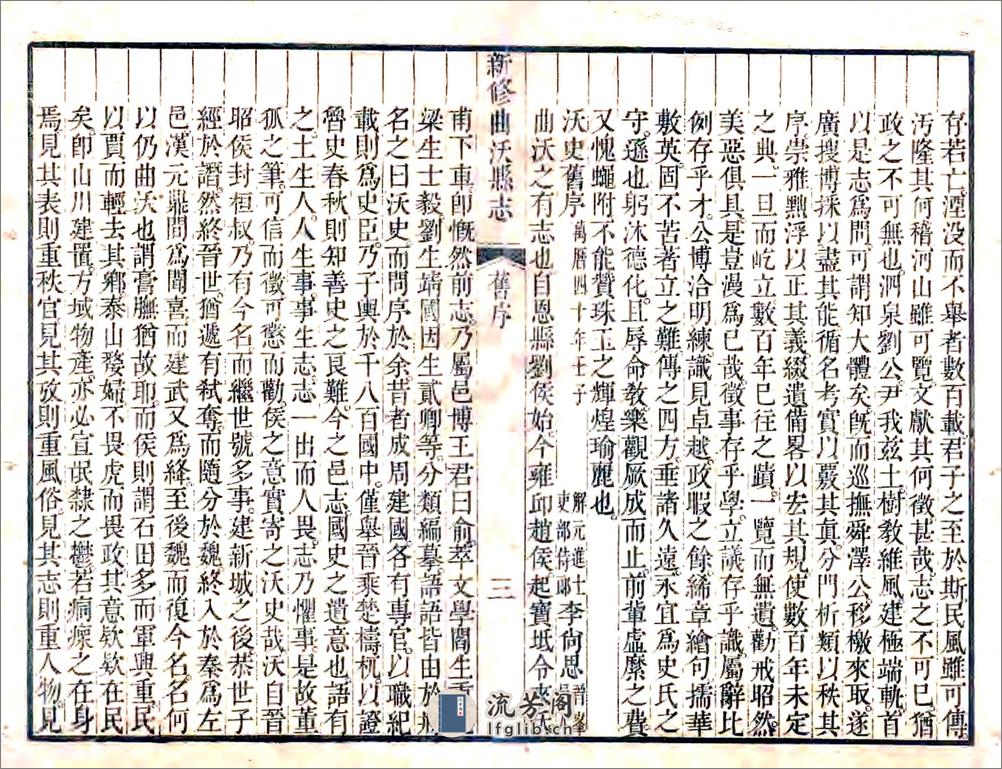 存若亡湮没而不舉者數百載君子之至於斯民風雖可傳
汚隆其何稽河山雖可覽文獻其何徵甚哉志之不可已猶
政之不可無也泗泉劉公尹我兹土樹教維風建極端軌首
以是志爲問可謂知大體矣旣而巡撫舜澤公移檄來取遂
廣搜博採以盡其能循名考實以覈其眞分門析類以秩其
序崇雅黜浮以正其義綴遺備畧以宏其規使數百年未定
之典一旦而屹立數百年已往之蹟一覽而無遺勸戒昭然
美惡俱具是豈漫爲已哉徵事存乎學立議存乎識屬辭比
例存乎才公博洽明練識見卓越政暇之餘絺章繪句擩華
敷英固不苦者立之難傳之四方垂諸久遠永宜爲史氏之
守遜也躬沐德化且辱命敎樂觀厥成而止前輩虛縻之費
又愧蠅附不能贊珠玉之輝煌瑜麗也
沃史舊序 萬曆四十年壬子 解元進士吏部侍郎 李尙思 晉峯
曲沃之有志也自恩縣劉侯始今雍邱趙侯起寶坻令來
新修曲沃縣志 舊序 三
甫下車卽慨然前志乃屬邑博王君曰俞萃文學閻生
梁生士毅劉生端國因生貳卿等分類編摹語語皆由於
名之曰沃史而問序於余昔者成周建國各有專官以職紀
載則爲史臣乃子輿於千八百國中僅舉晉乘楚檮杌以證
魯史春秋則知善史之良難今之邑志國史之遺意也語有
之土生人人生事事生志志一出而人畏志乃懼事是故董
狐之筆可信而徵可懲而勸侯之意實寄之沃史哉沃自晉
昭侯封桓叔乃有今名而繼世號多事建新城之後恭世子
經於譖然終晉世猶遞有弑奪而隨分於魏終入於秦爲左
邑漢元鼎間爲聞喜而建武又爲絳至後魏而復今名名何
以仍曲沃也謂膏膴猶故耶而侯則謂石田多而軍興重民
以賈而輕去其鄉泰山婺婦不畏虎而畏政其意欵欵在民
矣卽山川建置方域物產亦必宣氓隸之欝若痌瘝之在身
焉見其表則重秩官見其攷則重風俗見其志則重人物見
流芳阁
lfglib.cn